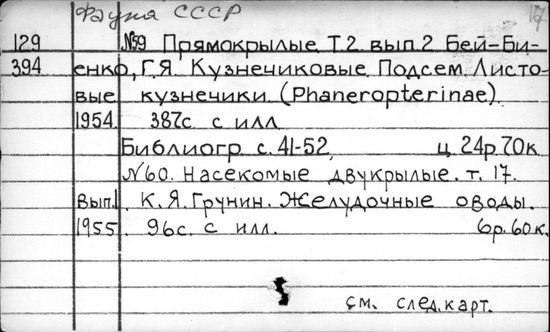 Фауна СССР 17
129 №59 Прямокрылые Т.2 вып.2 Бей-Би-
394 енко, Г.Я. Кузнечиковые Подсем. Листо-
вые кузнечики. (Phaneropterinae)
1954. 387с. с илл
Библиогр с. 41-52, ц. 24р.70к
№60. Насекомые двукрылые. т. 17.
Вып.1. К.Я. Грунин. Желудочные оводы.
1955. 96с. с илл. 6р.60к.
см. след.карт.